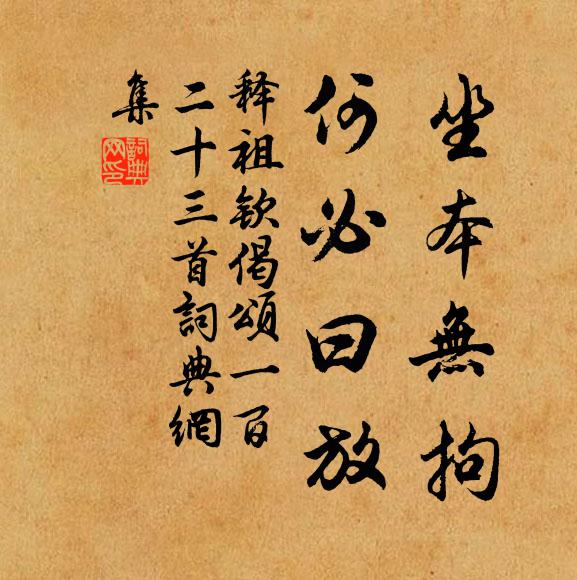 坐本無拘
何必曰放
释祖欽偈頌一百
二十三首詞典網
集
詞典網印